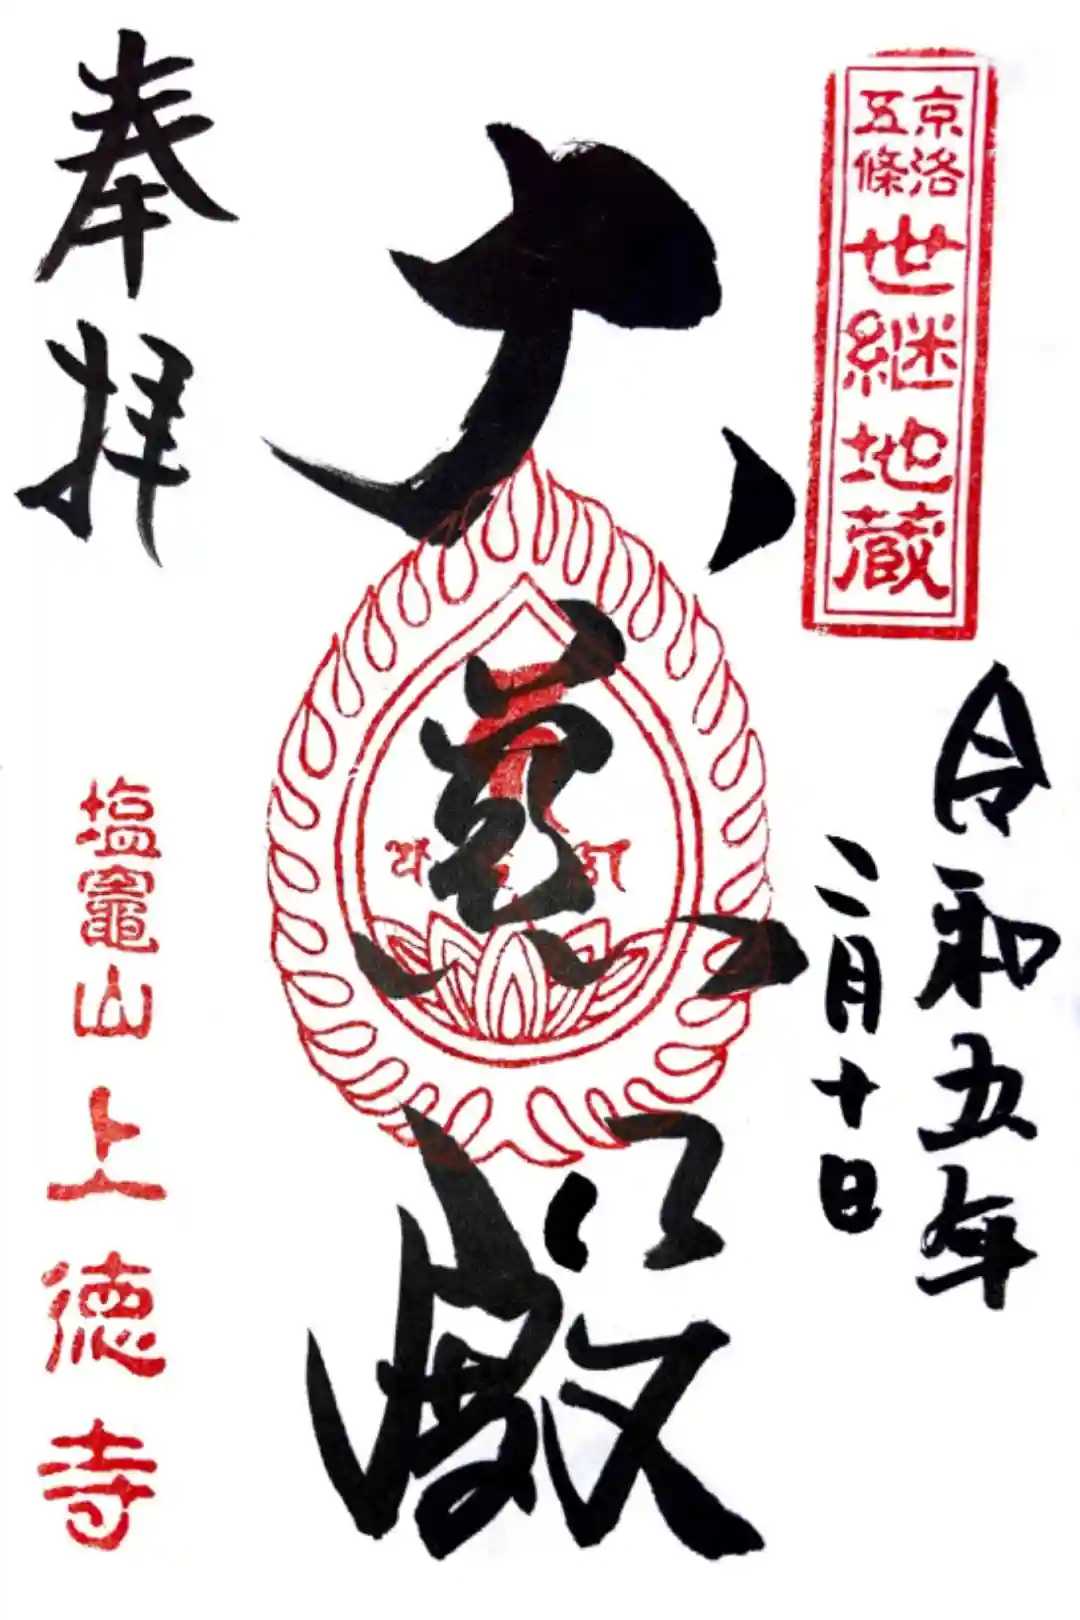 京洛
五條
世継地蔵
令和五年
二月十日
大慈殿
奉拝
塩竈山
上徳寺